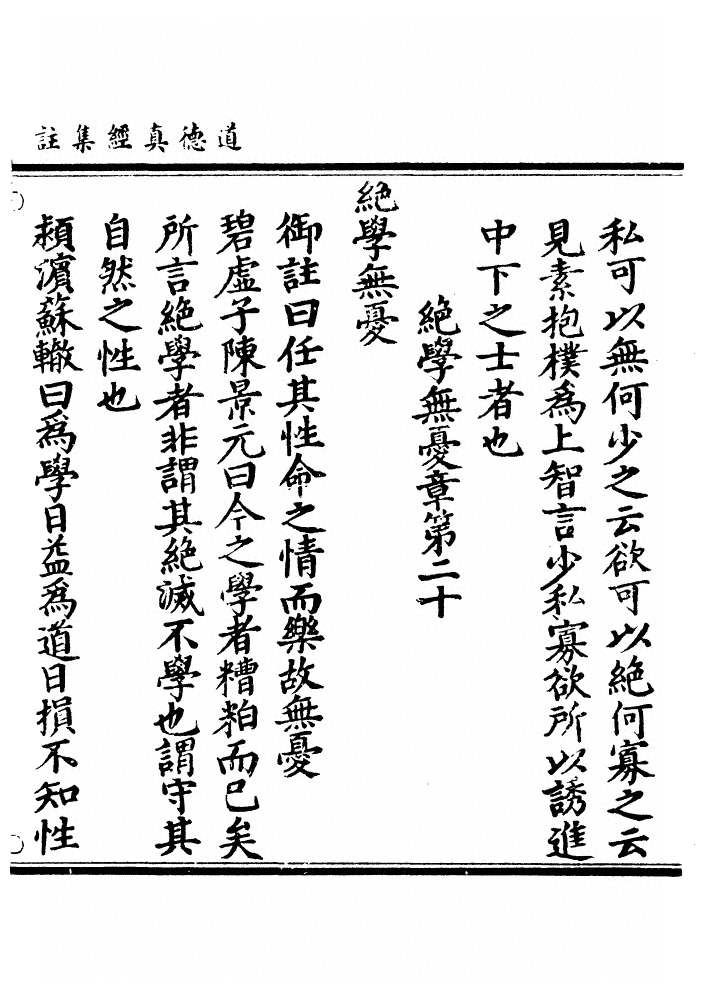 道德真經集註
私可以無何少之云欲可以絕何寡之云
見素抱樸為上智言少私寡欲所以誘進
中下之士者也
絕學無憂章第二十
絕學無憂
御註曰任其性命之情而樂故無憂
碧虛子陳景元曰今之學者糟粕而已矣
所言絕學者非謂其絕滅不學也謂守其
自然之性也
潁濱蘇轍曰為學日益為道日損不知性